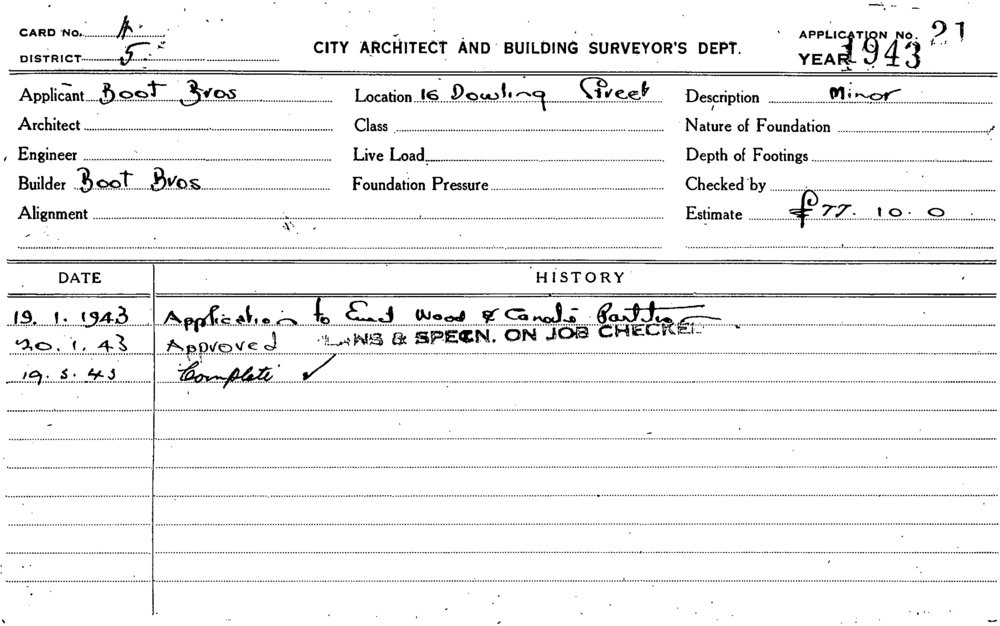 CARD No. A
DISTRICT 5
CITY ARCHITECT AND BUILDING SURVEYOR'S DEPT.
APPLICATION No. 21
YEAR 1943
Applicant Boot Bros
Location 16 Dowling Street
Description Minor
Architect
Class
Nature of Foundation
Engineer
Live Load
Depth of Footings
Builder Boot Bros
Foundation Pressure
Checked by
Alignment
Estimate £77. 10. 0
DATE HISTORY
19. 1. 1943 Application to Erect Wood & Partition
20. 1. 43 Approved PLANS & SPECN. ON JOB CHECKED
19. 5. 43 Complete ✓